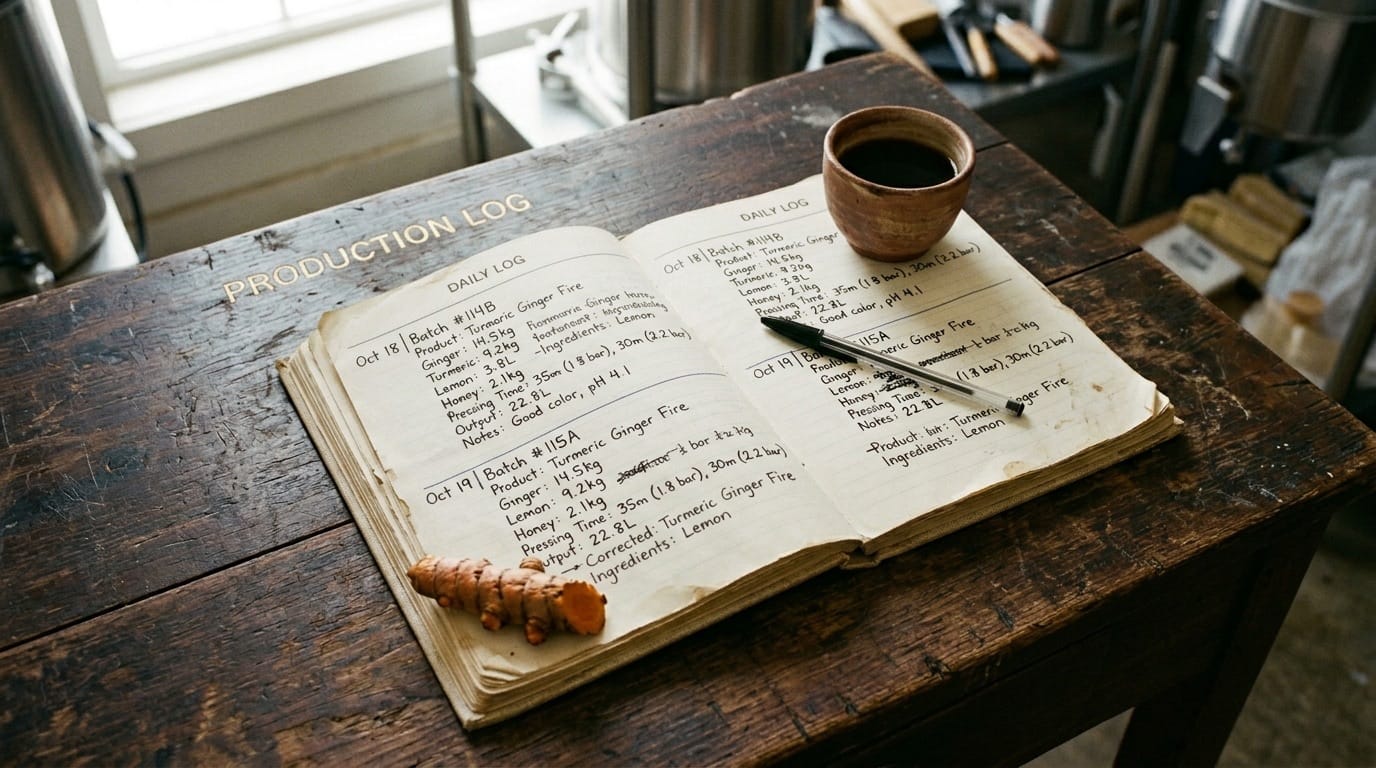 PRODUCTION LOG
DAILY LOG
Oct 18 | Batch #114B
Product: Turmeric Ginger Fire
Ginger: 14.5kg
Turmeric: 9.2kg
Lemon: 3.8L
Honey: 2.1kg
Pressing Time: 35m (1.8 bar), 30m (2.2 bar)
Output: 22.8L
Notes: Good color, pH 4.1
Ginger
-Ingredients: Lemon
Oct 19 | Batch #115A
Product: Turmeric Ginger Fire
Ginger: 14.5kg
Lemon: 9.2kg
bar
kg
Honey: 2.1kg
Pressing Time: 35m (1.8 bar), 30m (2.2 bar)
Output: 22.8L
→ Corrected: Turmeric Ginger Fire
Ingredients: Lemon
DAILY LOG
Oct 18 | Batch #114B
Product: Turmeric Ginger
Ginger: 14.5kg
Turmeric:
Lemon: 3.8L
Honey: 2.1kg
Pressing Time: 35m (1.8 bar), 30m (2.2 bar)
22.8L
Good color, pH 4.1
Oct 19 | 115A
Ginger Fire
Ginger
bar
kg
Honey:
Pressing Time: (1.8 bar), 30m (2.2 bar)
Notes: 22.8L
-Product: Turmeric Ginger Fire
Ingredients: Lemon